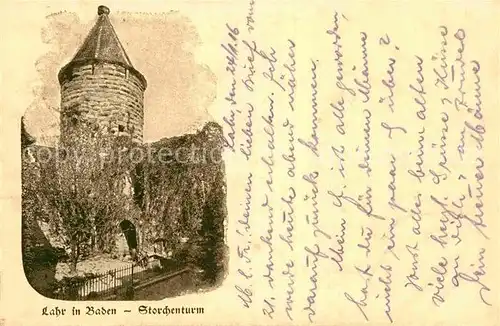 Lahr in Baden – Storchenturm
Lahr, den 24/9.16
M. l. F., deinen lieben Brief vom
21. dankend erhalten. Ich
werde heute abend näher
darauf zurück kommen.
Mein G. ist alle geworden,
hast du für deinen Männe
nicht ein paar G. über?
Sonst alles beim alten
viele herzl. Grüsse & Küsse
Dein treuer Männe